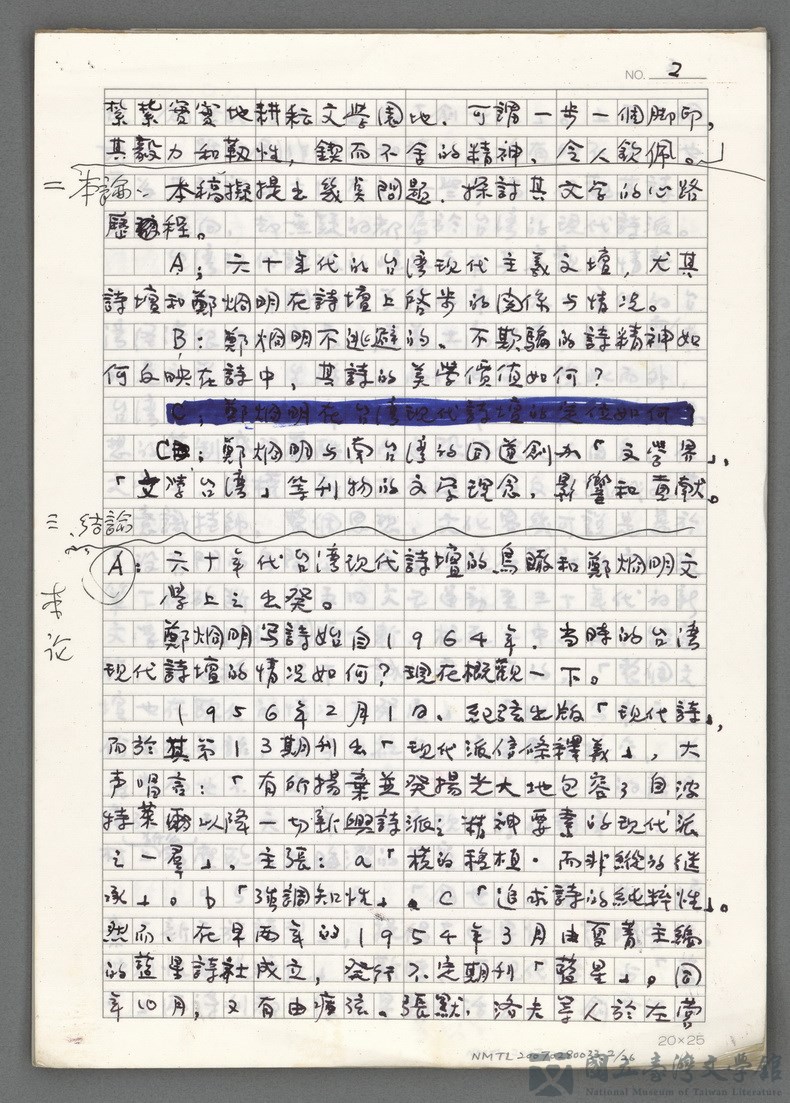 NO. 2
紮紮實實地耕耘文学園地．可謂一步一個脚印，
其毅力和韌性，鍥而不舍的精神、令人欽佩。」
二 本論： 本稿擬提出幾矣問題．探討其文学的心路
歷程。
A；六十年代的台湾現代主義文壇，尤其
詩壇和鄭烱明在詩壇上啓步的関係与情况。
B：鄭烱明不逃避的．不欺騙的詩精神如
何反映在詩中，其詩的美学價值如何？
C；鄭烱明在台湾現代詩壇的定位如何？
C：鄭烱明与南台湾的同道創办「文学界」，
「文学台湾」等刊物的文学理念．影響和貢献。
三 結論
A：六十年代台湾現代詩壇的鳥瞰和鄭烱明文
学上之出発。
本论
鄭烱明写詩始自1964年．当時的台湾
現代詩壇的情况如何？現在概觀一下。
1956年2月1日、紀弦出版「現代詩」，
而於其第13期刊出「現代派信條釋義」，大
声唱言：「有所揚棄並発揚光大地包容了自波
特萊爾以降一切新興詩派之精神要素的現代派
之一羣」．主張：a「横的移植．而非縱的继
承」。b「強調知性」。C「追求詩的純粹性」。
然而、在早两年的1954年3月由夏菁主編
的藍星詩社成立，発行不定期刊「藍星」。同
年10月，又有由瘂弦、張默．洛夫等人於左营
20×25
NMTL 20070280033 2/26
國立臺灣文學館
National Museum of Taiwan Literature